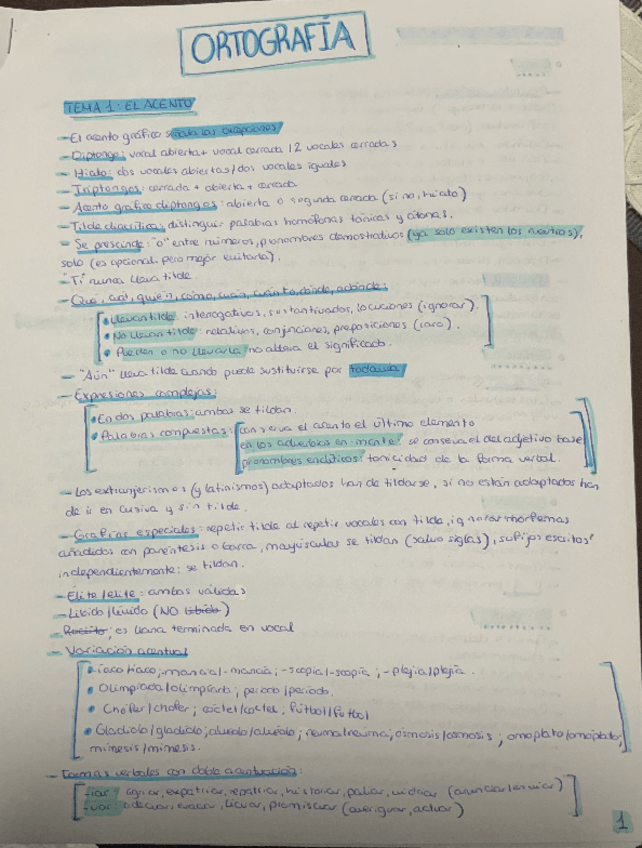 ORTOGRAFÍA
TEMA 1: EL ACENTO
- El acento gráfico señala las excepciones
- Diptongo: vocal abierta + vocal cerrada / 2 vocales cerradas
- Hiato: dos vocales abiertas/dos vocales iguales
- Triptongos: cerrada + abierta + cerrada
- Acento gráfico diptongos: abierta o segunda cerrada (si no, hiato)
- Tilde diacrítica: distinguir palabras homófonas tónicas y átonas.
- Se prescinde: "o" entre números, pronombres demostrativos (ya solo existen los neutros),
solo (es opcional, pero mejor evitarla).
- Ti nunca lleva tilde.
- Qué, cuál, quién, cómo, cuán, cuánto, dónde, adónde:
• Llevan tilde: interrogativos, sustantivados, locuciones (ignorar).
• No llevan tilde: relativos, conjunciones, preposiciones (raro).
• Pueden o no llevarla no altera el significado.
- "Aún" lleva tilde cuando puede sustituirse por todavía
- Expresiones complejas:
• En dos palabras: ambas se tildan.
• Palabras compuestas: conserva el acento el último elemento
en los adverbios en -mente se conserva el del adjetivo base
pronombres enclíticos: tonicidad de la forma verbal.
- Los extranjerismos (y latinismos) adaptados han de tildarse, si no están adaptados han
de ir en cursiva y sin tilde.
- Grafías especiales: repetir tilde al repetir vocales con tilde, ignorar morfemas
añadidos con paréntesis o barra, mayúsculas se tildan (salvo siglas), sufijos escritos
independientemente: se tildan.
- Élite/elite: ambas válidas
- Libido/lívido (NO líbido)
- es llana terminada en vocal
- Variación acentual
• -íaco/iaco; -mancia/-mancía; -scopia/-scopía; -plejia/plejía.
• Olimpiada/olimpíada; periodo/período.
• Chófer/chofer; cóctel/coctel; fútbol/futbol
• Gladiolo/gladíolo; alveolo/alvéolo; reuma/reúma; osmosis/ósmosis; omoplato/omóplato;
mimesis/mímesis.
- Formas verbales con doble acentuación:
-iar: agriar, expatriar, repatriar, historiar, paliar, vidriar (anunciar/enviar)
-uar: adecuar, evacuar, licuar, promiscuar (averiguar, actuar)
1